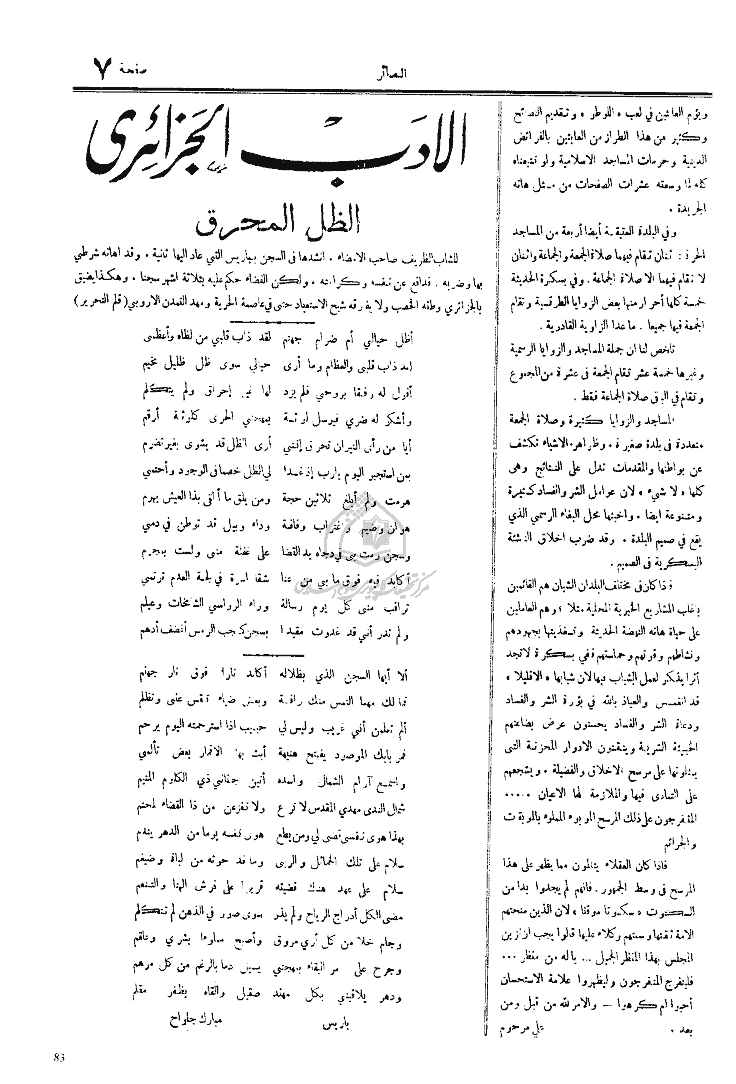 صفحة ٧
البصائر
ويؤم العابثين في لعب « اللوطو » وتقديم النصائح
وكثير من هذا الطراز من العابثين بالفرائض
الدينية وحرمات المساجد الاسلامية ولو تتبعناه
كله لما وسعته عشرات الصفحات من مثل هاته
الجريدة .
وفي البلدة العتيقة أيضا أربعة من المساجد
الحرة : ثنتان تقام فيهما صلاة الجمعة والجماعة واثنتان
لا تقام فيهما الا صلاة الجماعة . وفي بسكرة الحديثة
خمسة كلها أحرار منها بعض الزوايا الطرقية وتقام
الجمعة فيها جميعا . ما عدا الزاوية القادرية .
تلخص لنا ان جملة المساجد والزوايا الرسمية
وغيرها خمسة عشر تقام الجمعة في عشرة من المجموع
وتقام في الباقي صلاة الجماعة فقط .
المساجد والزوايا كثيرة وصلاة الجمعة
متعددة في بلدة صغيرة ، وظواهر الاشياء تكشف
عن بواطنها والمقدمات تدل على النتائج وهي
كلها « لا شيء » لان عوامل الشر والفساد كثيرة
ومتنوعة ايضا . واخبثها محل البغاء الرسمي الذي
يقع في صميم البلدة . وقد ضرب اخلاق الناشئة
البسكرية في الصميم .
فاذا كان في مختلف البلدان الشبان هم القائمين
بأغلب المشاريع الخيرية المحلية مثلا ، وهم العاملين
على حياة هاته النهضة الحديثة وتغذيتها بجهودهم
ونشاطهم وقوتهم وحماستهم ففي بسكرة لا تجد
أثرا يذكر لعمل الشباب فيها لان شبابها « الا قليلا »
قد انغمس والعياذ بالله في بؤرة الشر والفساد
ودعاة الشر والفساد يحسنون عرض بضاعتهم
الخبيثة الشريرة ويتقنون الادوار المحزنة التي
يمثلونها على مرسح الاخلاق والفضيلة . ويشجعهم
على التمادى فيها والملازمة لها الاعيان .....
المتفرجون على ذلك المرسح الموبوء المملوء بالموبقات
والجرائم
فاذا كان العقلاء يتألمون مما يظهر على هذا
المرسح في وسط الجمهور . فانهم لم يجدوا بدا من
السكوت « سكوتا موقتا » لان الذين منحتهم
الامة ثقتها وسمتهم وكلاء عليها قالوا يجب
المجلس بهذا المنظر الجميل ... ياله من منظر ...
فليتفرج المتفرجون وليظهروا علامة الاستحسان
أحبوا ام كرهوا — والامر لله من قبل ومن
بعد .    علي مرحوم
الادب الجزائرى
الظل المحرق
للشاب الظريف صاحب الامضاء . انشدها في السجن بباريس التي عاد اليها ثانية . وقد اهانه شرطي
بها وضربه . فدافع عن نفسه وكرامته . ولكن القضاء حكم عليه بثلاثة اشهر سجنا . وهكذا يضيق
بالجزائري وطنه الخصب ولا يفارقه شبح الاستعباد حتى في عاصمة الحرية ومهد التمدن الاروبي (قلم التحرير)
أظل حيالي أم ضرام جهنم    لقد ذاب قلبي من لظاه وأعظمي
لقد ذاب قلبي والعظام وما أرى    حيالي سوى ظل ظليل مخيم
أقول له رفقا بروحي فلم يزد    لها غير إحراق ولم يتكلم
وأشكو له ضري فيرسل لوثة    بمهجتي الحرى كلوثة أرقم
أيا من رأى النيران تحرق إنني    أرى الظل قد يشوى بغير تضرم
بمن استجير اليوم يارب إذ غدا    لي الظل خصما في الوجود وأحتمي
هرمت ولم أبلغ ثلاثين حجة    ومن يلق ما ألقى بذا العيش يهرم
هوان وضيم واغتراب وفاقة    وداء وبيل قد توطن في دمي
وسجن رمت بي في دجاه يد القضا    على غفلة منى ولست بمجرم
أكابد فيه فوق ما بي من عنا    شقا اسرة في لجة العدم ترتمي
تراقب منى كل يوم رسالة    وراء الرواسي الشامخات وعيلم
ولم تدر أنني قد غدوت مقيدا    بسجن كجب الرمس أغضف أدهم
ألا أيها السجن الذي بظلاله    أكابد نارا فوق نار جهنم
أما لك مهما التمس منك رافة    وبعض ضياء تقس عنى وتظلم
ألم تعلمن أنني غريب وليس لي    حبيب اذا استرحمته اليوم يرحم
فمر بابك الموصود يفتح هنيهة    أبث بها الاقمار بعض تألمي
واسمع آرام الشمال واسده    أنين جناني ذي الكلوم المتيم
شمال الندى مهدي المقدس لا ترع    ولا تفزعن من ذا القضاء المحتم
بهذا هوى نفسي قضى لي ومن يطع    هوى نفسه يوما من الدهر يندم
سلام على تلك الخمائل والربى    وما قد حوته من لباة وضيغم
سلام على عهد هناك قضيته    قريرا على فرش الهنا والتنعم
مضى الكل أدراج الرياح ولم يذر    سوى صور في الذهن لم تتكلم
وجام خلا من كل أري مروق    وأصبح مملوءا بشري وعلقم
وجرح على مر البقاء بمهجتي    يسيل دما بالرغم من كل مرهم
ودهر يلاقيني بكل مهند    صقيل والقاه بظفر مقلم
باريس    مبارك جلواح
83